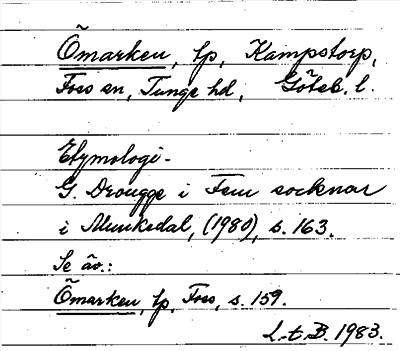 Õmarken, lp, Kampstorp,
Foss sn, Tunge hd, Göteb. l.
Etymologi -
G. Drougge i Fem socknar
i Munkedal, (1980), s. 163.
Se äv.:
Õmarken, lp, Foss, s. 159.
L-t-B. 1983.